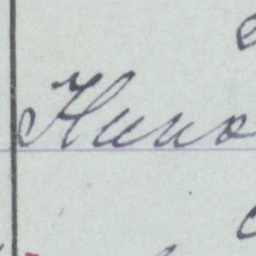 Нико